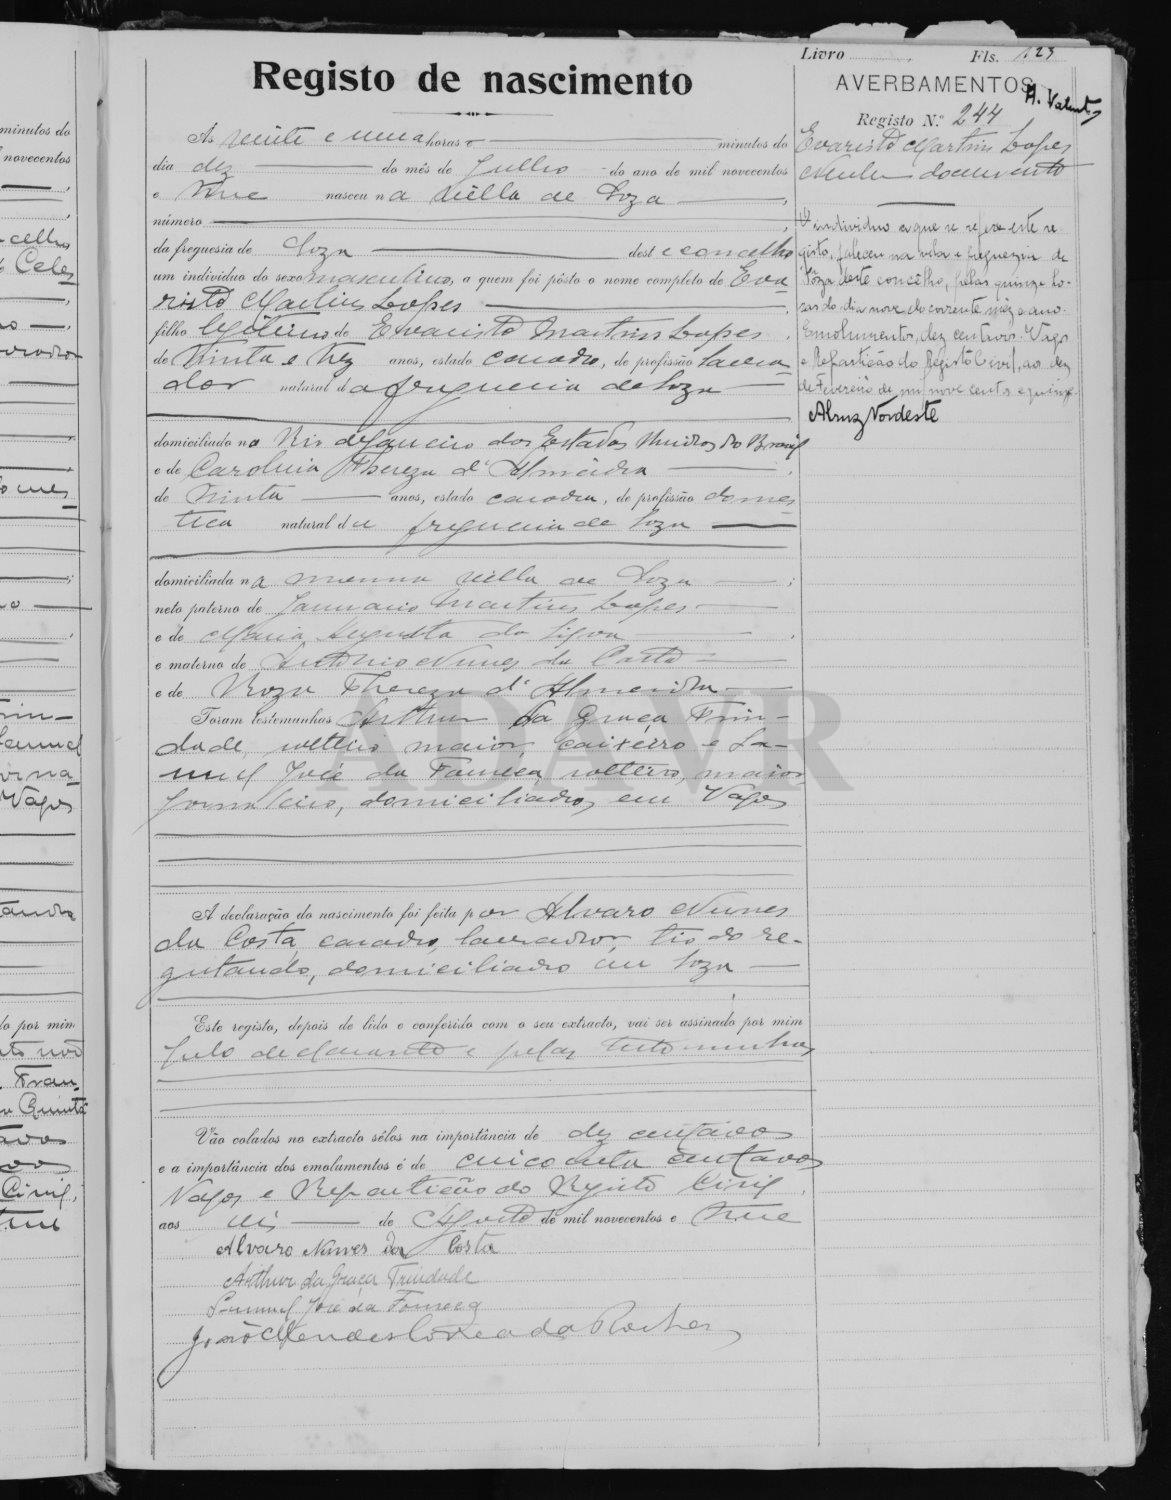 Livro Fls. 123
Registo de nascimento
AVERBAMENTOS
Registo N.º 244
Evaristo Martins Lopes
Nenhum documento
Ás vinte e uma horas e minutos do
dia dez do mês de Julho do ano de mil novecentos
e treze nasceu na villa de Soza
número
da freguesia de Soza deste concelho
um indivíduo do sexo masculino, a quem foi pôsto o nome completo de Eva-
risto Martins Lopes
filho legitimo de Evaristo Martins Lopes
de trinta e trez anos, estado casado, de profissão lavra-
dor natural da freguesia de Soza
domiciliado no Rio de Janeiro dos Estados Unidos do Brasil
e de Carolina Thereza d'Almeida
de trinta anos, estado casada, de profissão domes-
tica natural da freguesia de Soza
domiciliada na mesma villa de Soza
neto paterno de Januario Martins Lopes
e de Maria Augusta da Silva
e materno de Antonio Nunes da Costa
e de Roza Thereza d'Almeida
Foram testemunhas Arthur da Graça Trin-
dade, solteiro maior, caixeiro e Sa-
muel José da Fonseca, solteiro, maior
jornaleiro, domiciliados em Vagos
A declaração do nascimento foi feita por Alvaro Nunes
da Costa, casado, lavrador, tio do re-
gistando, domiciliado em Soza
Este registo, depois de lido e conferido com o seu extracto, vai ser assinado por mim
pelo declarante e pelas testemunhas
Vão colados no extracto sêlos na importância de dez centavos
e a importância dos emolumentos é de cincoenta centavos
Vagos e Repartição do Registo Civil,
aos seis de Agosto de mil novecentos e treze
Alvaro Nunes da Costa
Arthur da Graça Trindade
Samuel José da Fonseca
João Mendes Correa da Rocha
O individuo a que se refere este re-
gisto, faleceu na vila e freguezia de
Sôza, deste concelho, pelas quinze ho-
ras do dia nove do corrente mez e ano.
Emolumentos, dez centavos. Vagos
e Repartição do Registo Civil, aos dez
de Fevereiro de mil nove centos e quinze
ADAVR